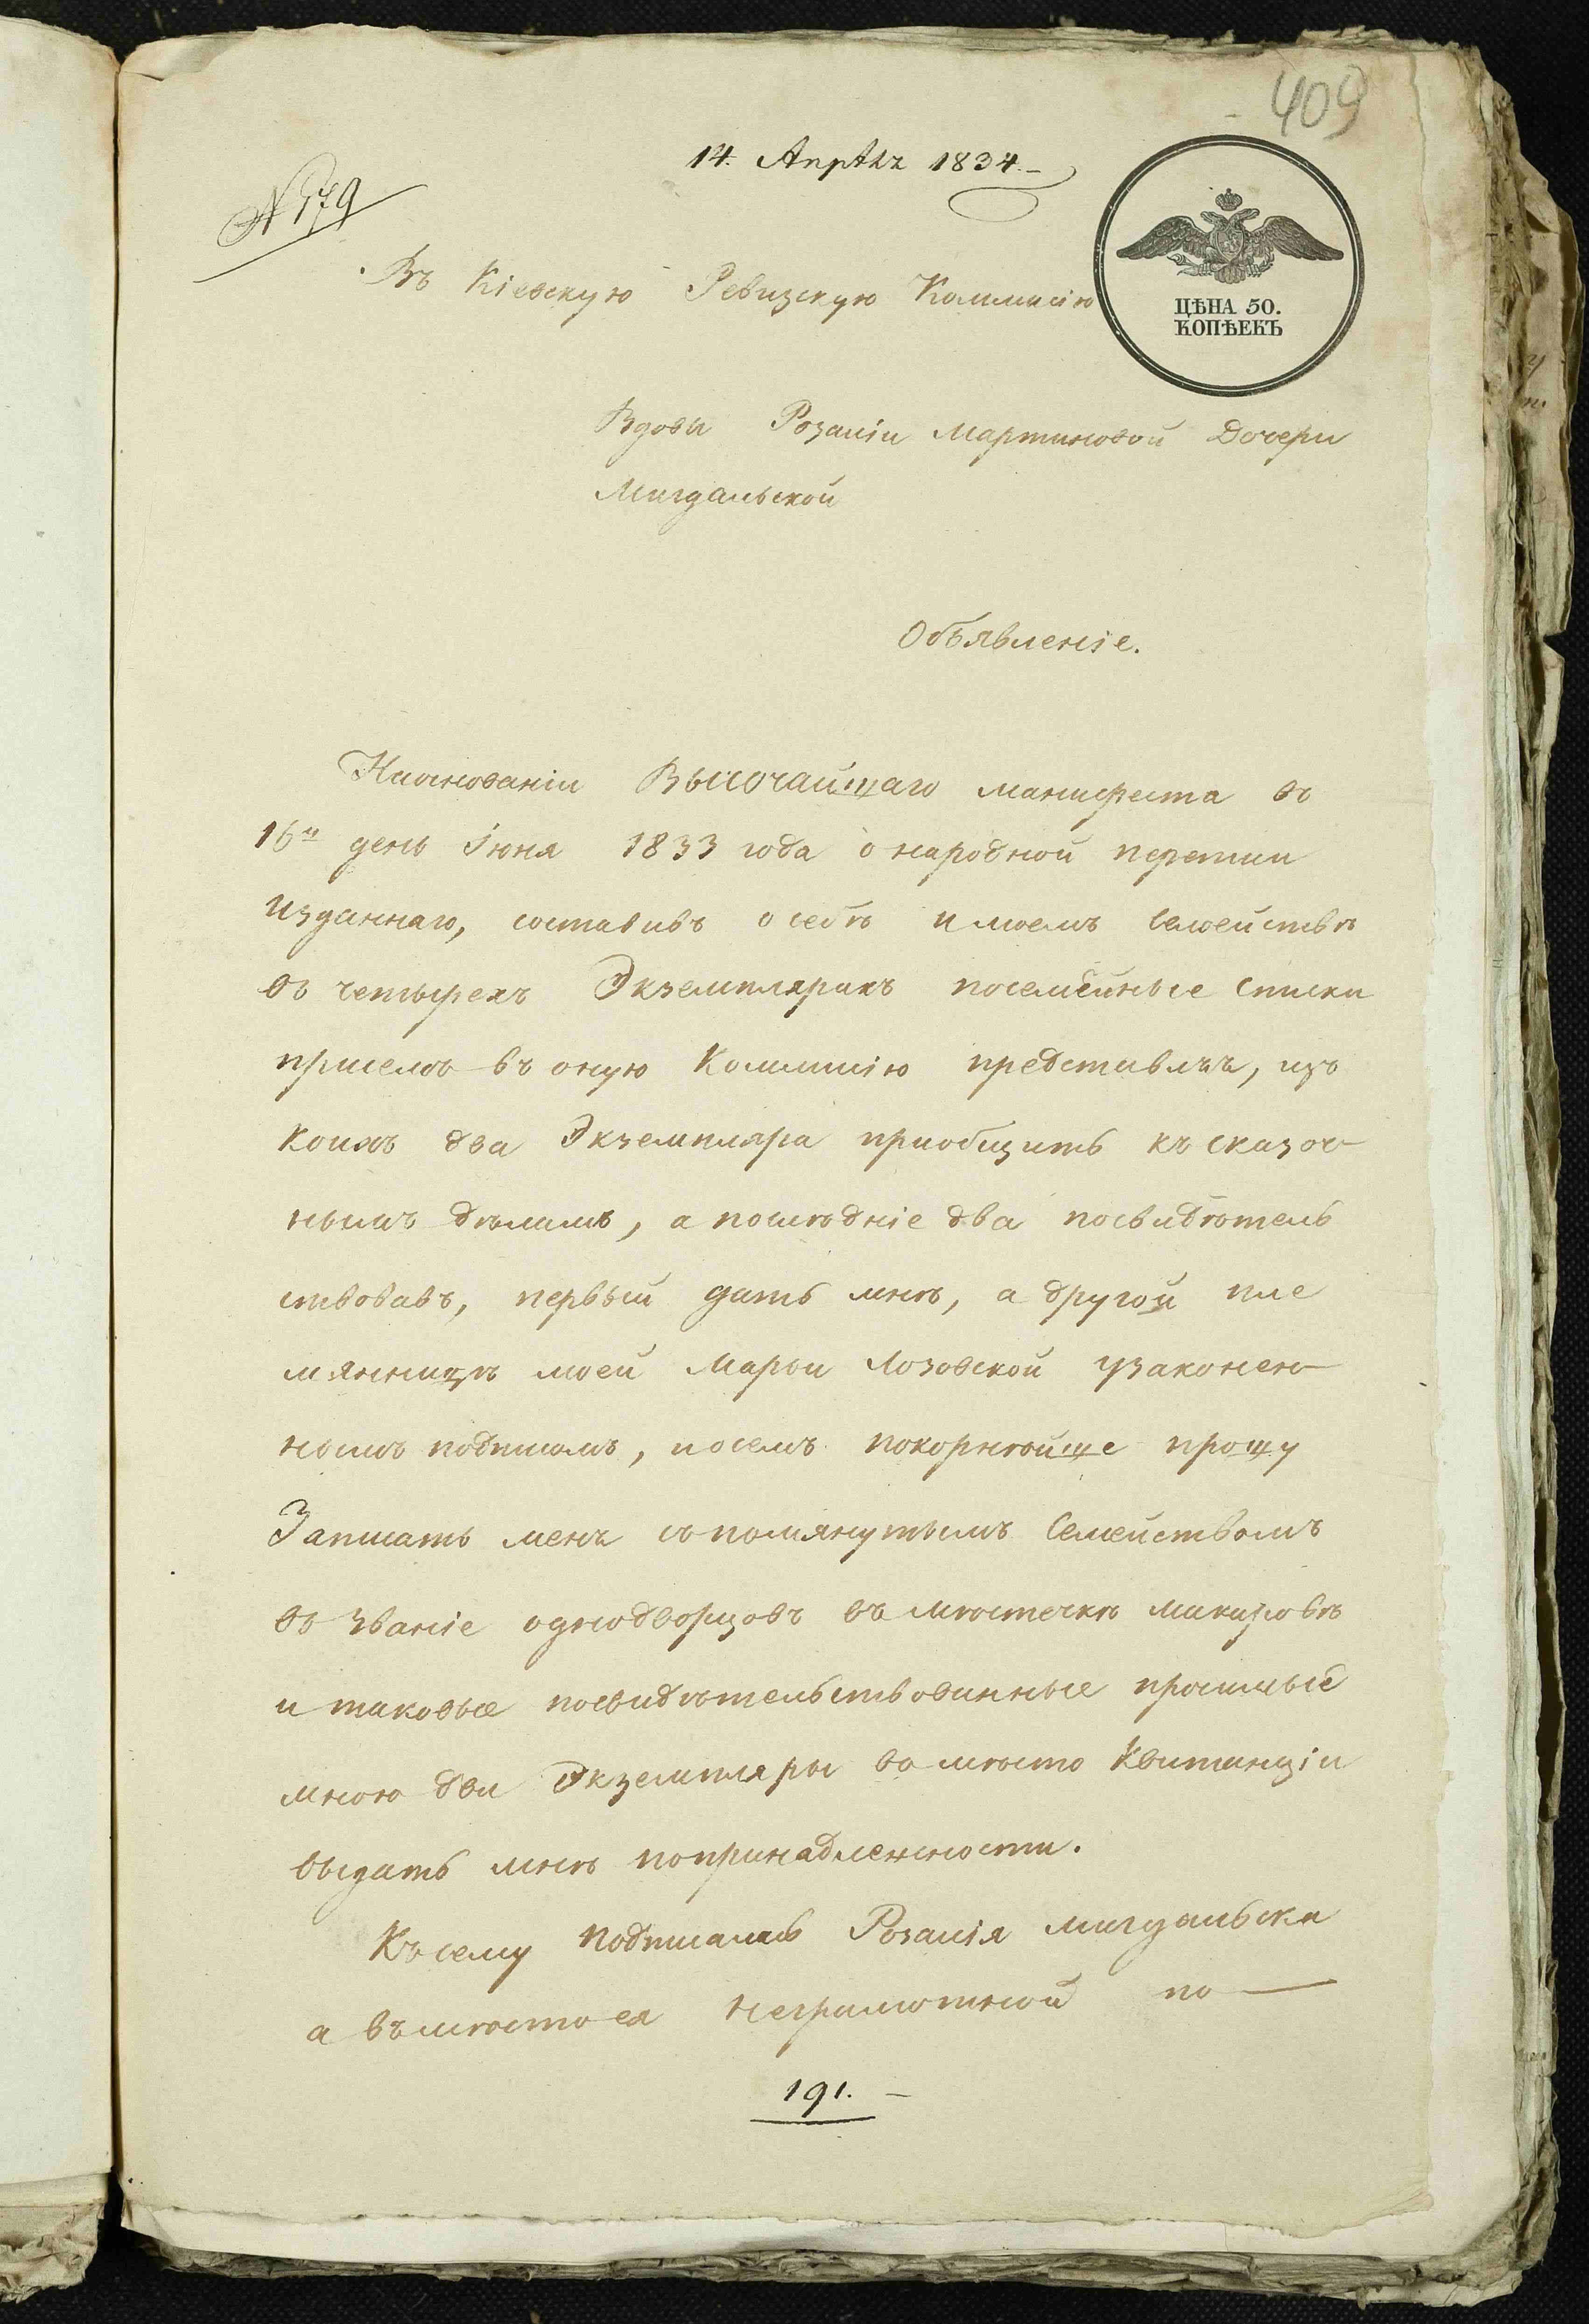 409
14. Апрѣля 1834.
№ 579
Въ Кіевскую Ревизскую Коммисію
ЦѢНА 50.
КОПѢЕКЪ
Вдовы Розаліи Мартиновой Дочери
Мигдальской
Объявленіе.
Наоснованіи Высочайшаго манифеста въ
16й день Іюня 1833 года о народной переписи
изданнаго, составивъ о себѣ и моемъ Семействѣ
въ четырехъ Экземплярахъ посемейные Списки
присемъ въ оную Коммисію представляя, изъ
коихъ два Экземпляра приобщить къ сказоч-
нымъ дѣламъ, а послѣдніе два посвидѣтель
ствовавъ, первый дать мнѣ, а другой пле
мянницѣ моей Марьи Лозовской узаконен-
нымъ подписомъ, посемъ покорнѣйше прошу
Записать меня съ помянутымъ Семействомъ
въ Званіе однодворцовъ въ мѣстечкѣ Макаровѣ
и таковые посвидѣтельствованные просимые
мною два Экземпляры въ мѣсто Квитанціи
выдать мнѣ попринадлежности.
Къ сему подписалась Розалія Мигдальска
а въмѣсто ея неграмотной по
191.